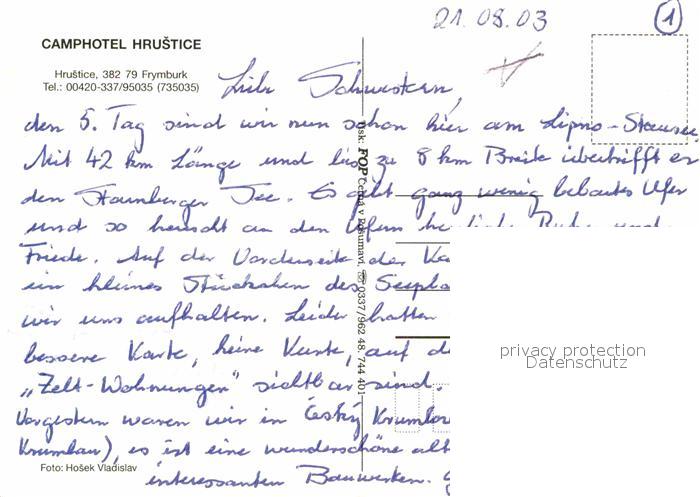 21.08.03
1
CAMPHOTEL HRUŠTICE
Hruštice, 382 79 Frymburk
Tel.: 00420-337/95035 (735035)
Liebe Schwestern,
den 5. Tag sind wir nun schon hier am Lipno-Stausee.
Mit 42 km Länge und bis zu 8 km Breite übertrifft er
den Starnberger See. Es gibt ganz wenig bebautes Ufer
und so herrscht an den Ufern herrliche Ruhe und
Friede. Auf der Vorderseite der Ka
ein kleines Stückchen des
wir uns aufhalten. Leider hatten
bessere Karte, keine Karte, auf d
„Zelt-Wohnungen" sichtbar sind.
Vorgestern waren wir in Český Krumlov
Krumlau), es ist eine wunderschöne alt
interessanten Bauwerken.
Foto: Hošek Vladislav
tisk: FOP Černá v Pošumaví, ☏ 0337/962 48, 744 401
privacy protection
Datenschutz